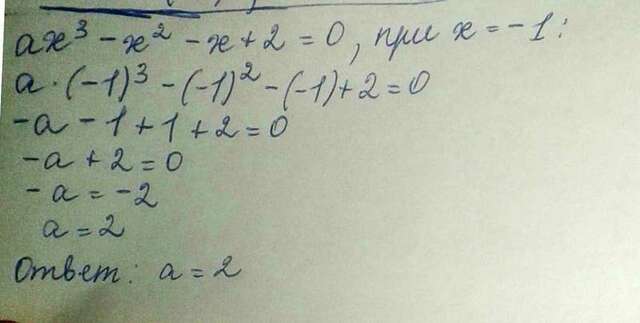 ax³ - x² - x + 2 = 0, при x = -1:
a · (-1)³ - (-1)² - (-1) + 2 = 0
-a - 1 + 1 + 2 = 0
-a + 2 = 0
-a = -2
a = 2
Ответ: a = 2